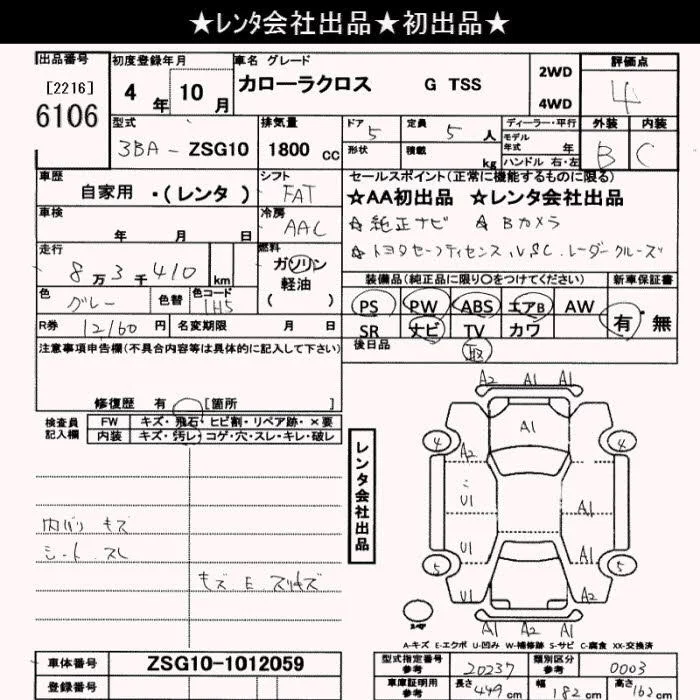 ★レンタ会社出品★初出品★
出品番号
[2216]
6106
初度登録年月
4年 10月
車名 グレード
カローラクロス G TSS
2WD
4WD
評価点
4
型式
3BA - ZSG10
排気量
1800 cc
ドア 5
定員 5 人
形状
積載 kg
ディーラー・平行
モデル年式 年
ハンドル 右・左
外装 B
内装 C
車歴
自家用 ・(レンタ )
シフト FAT
冷房 AAC
車検 年 月 日
走行
8万3千410 km
燃料
ガソリン
軽油
( )
色 グレー
色替
色コード 1H5
R券 12160 円
名変期限 月 日
セールスポイント(正常に機能するものに限る)
★AA初出品 ★レンタ会社出品
☆ 純正ナビ ☆ Bカメラ
☆ トヨタセーフティセンス、VSC、レーダークルーズ
装備品(純正品に限り○をつけてください)
新車保証書
PS PW ABS エアB AW
SR ナビ TV カワ
有・無
後日品 取
注意事項申告欄(不具合内容等は具体的に記入して下さい)
修復歴 有 [箇所 ]
検査員記入欄
FW キズ・飛石・ヒビ割・リペア跡・×要
内装 キズ・汚レ・コゲ・穴・スレ・キレ・破レ
内バリ キズ
シート スレ
キズ E スリキズ
レンタ会社出品
A2 A1 A1
A1
4 4
A2
U1 A1
A1
5 5
U1 A2
A1 A2 A1
A-キズ E-エクボ U-凹み W-補修跡 S-サビ C-腐食 XX-交換済
車体番号 ZSG10-1012059
登録番号
型式指定番号参考 20237
類別区分参考 0003
車庫証明用参考 長さ 449 cm 幅 182 cm 高さ 162 cm